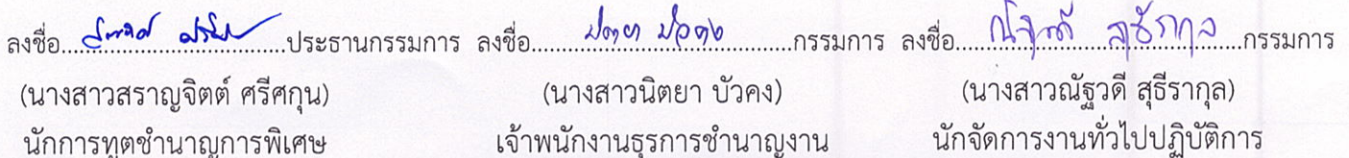 ลงชื่อ........................................ประธานกรรมการ ลงชื่อ........................................กรรมการ ลงชื่อ ณัฐวดี สุธีรากุล กรรมการ
(นางสาวสราญจิตต์ ศรีศกุน) (นางสาวนิตยา บัวคง) (นางสาวณัฐวดี สุธีรากุล)
นักการทูตชำนาญการพิเศษ เจ้าพนักงานธุรการชำนาญงาน นักจัดการงานทั่วไปปฏิบัติการ